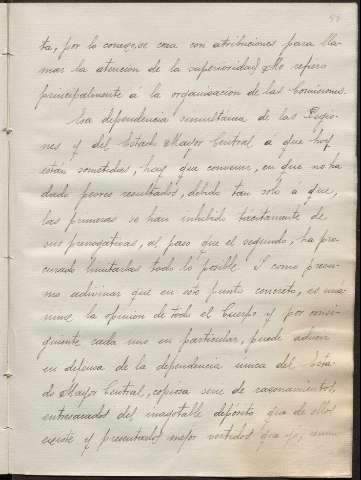 ta, por lo conozo, se crea con atribuciones para lla-
mar la atención de la superioridad) Me refiero
principalmente á la organisación de las Comisiones.
La dependencia simultánea de las Regio-
nes y del Estado Mayor Central á que hoy
están sometidas, hay que convenir, en que no ha
dado peores resultados, debido tan solo á que,
las primeras se han inhibido tacitamente de
sus prerrogativas, al paso que el segundo, ha pro-
curado limitarlas todo lo posible. Y como presu-
mo adivinar que en este punto concreto, es una-
nime la opinion de todo el Cuerpo y por consi-
guiente cada uno en particular, puede aducir
en defensa de la dependencia unica del Esta-
do Mayor Central, copiosa serie de razonamientos,
entresacados del inagotable depósito que de ellos
existe y presentados mejor vestidos que yo,